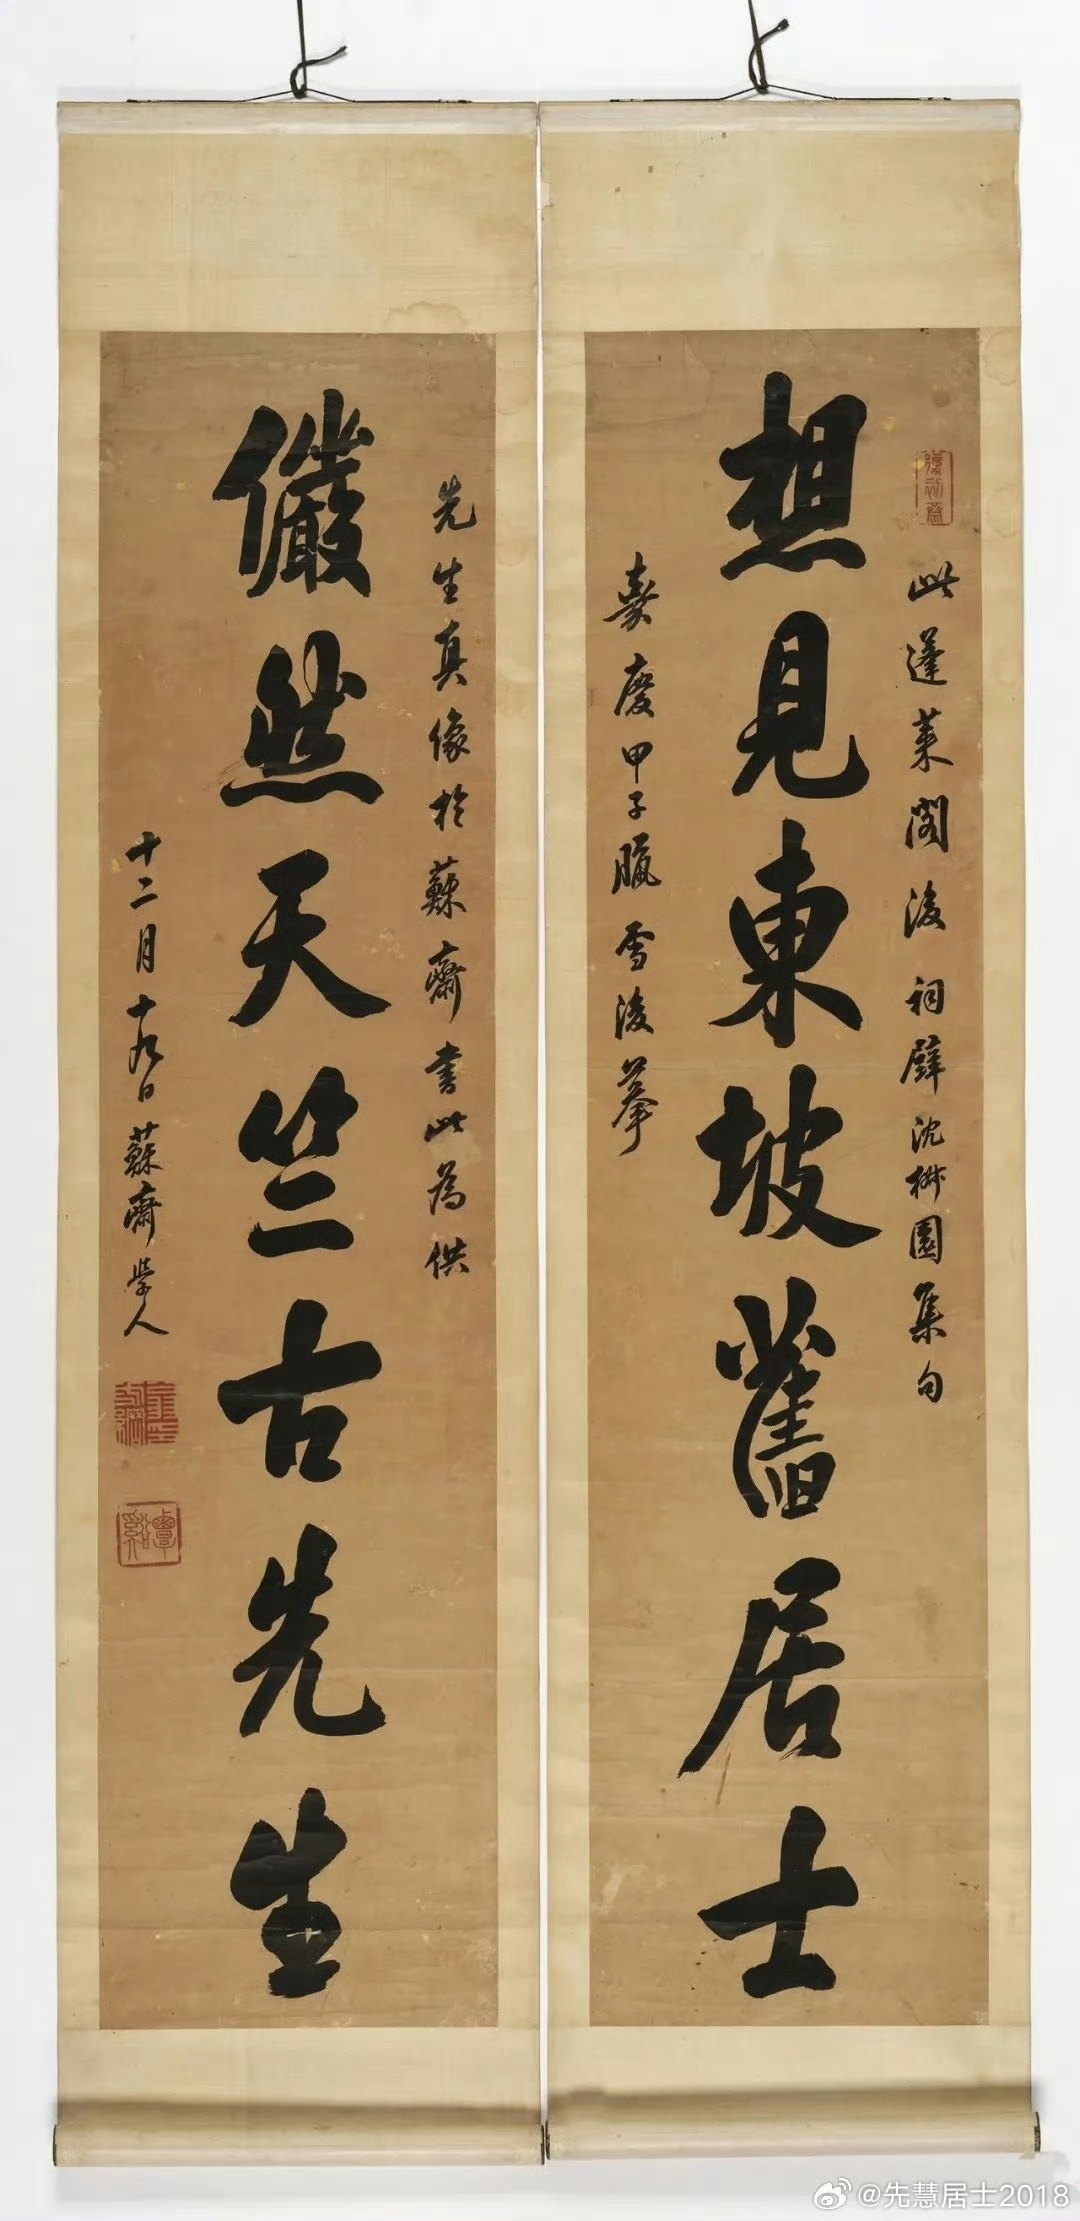 想見東坡舊居士
此蓬萊閣後祠壁沈椒園集句
嘉慶甲子臘雪後摹
復初齋
儼然天竺古先生
先生真像於蘇齋書此為供
十二月十九日蘇齋學人
覃谿
@先慧居士2018